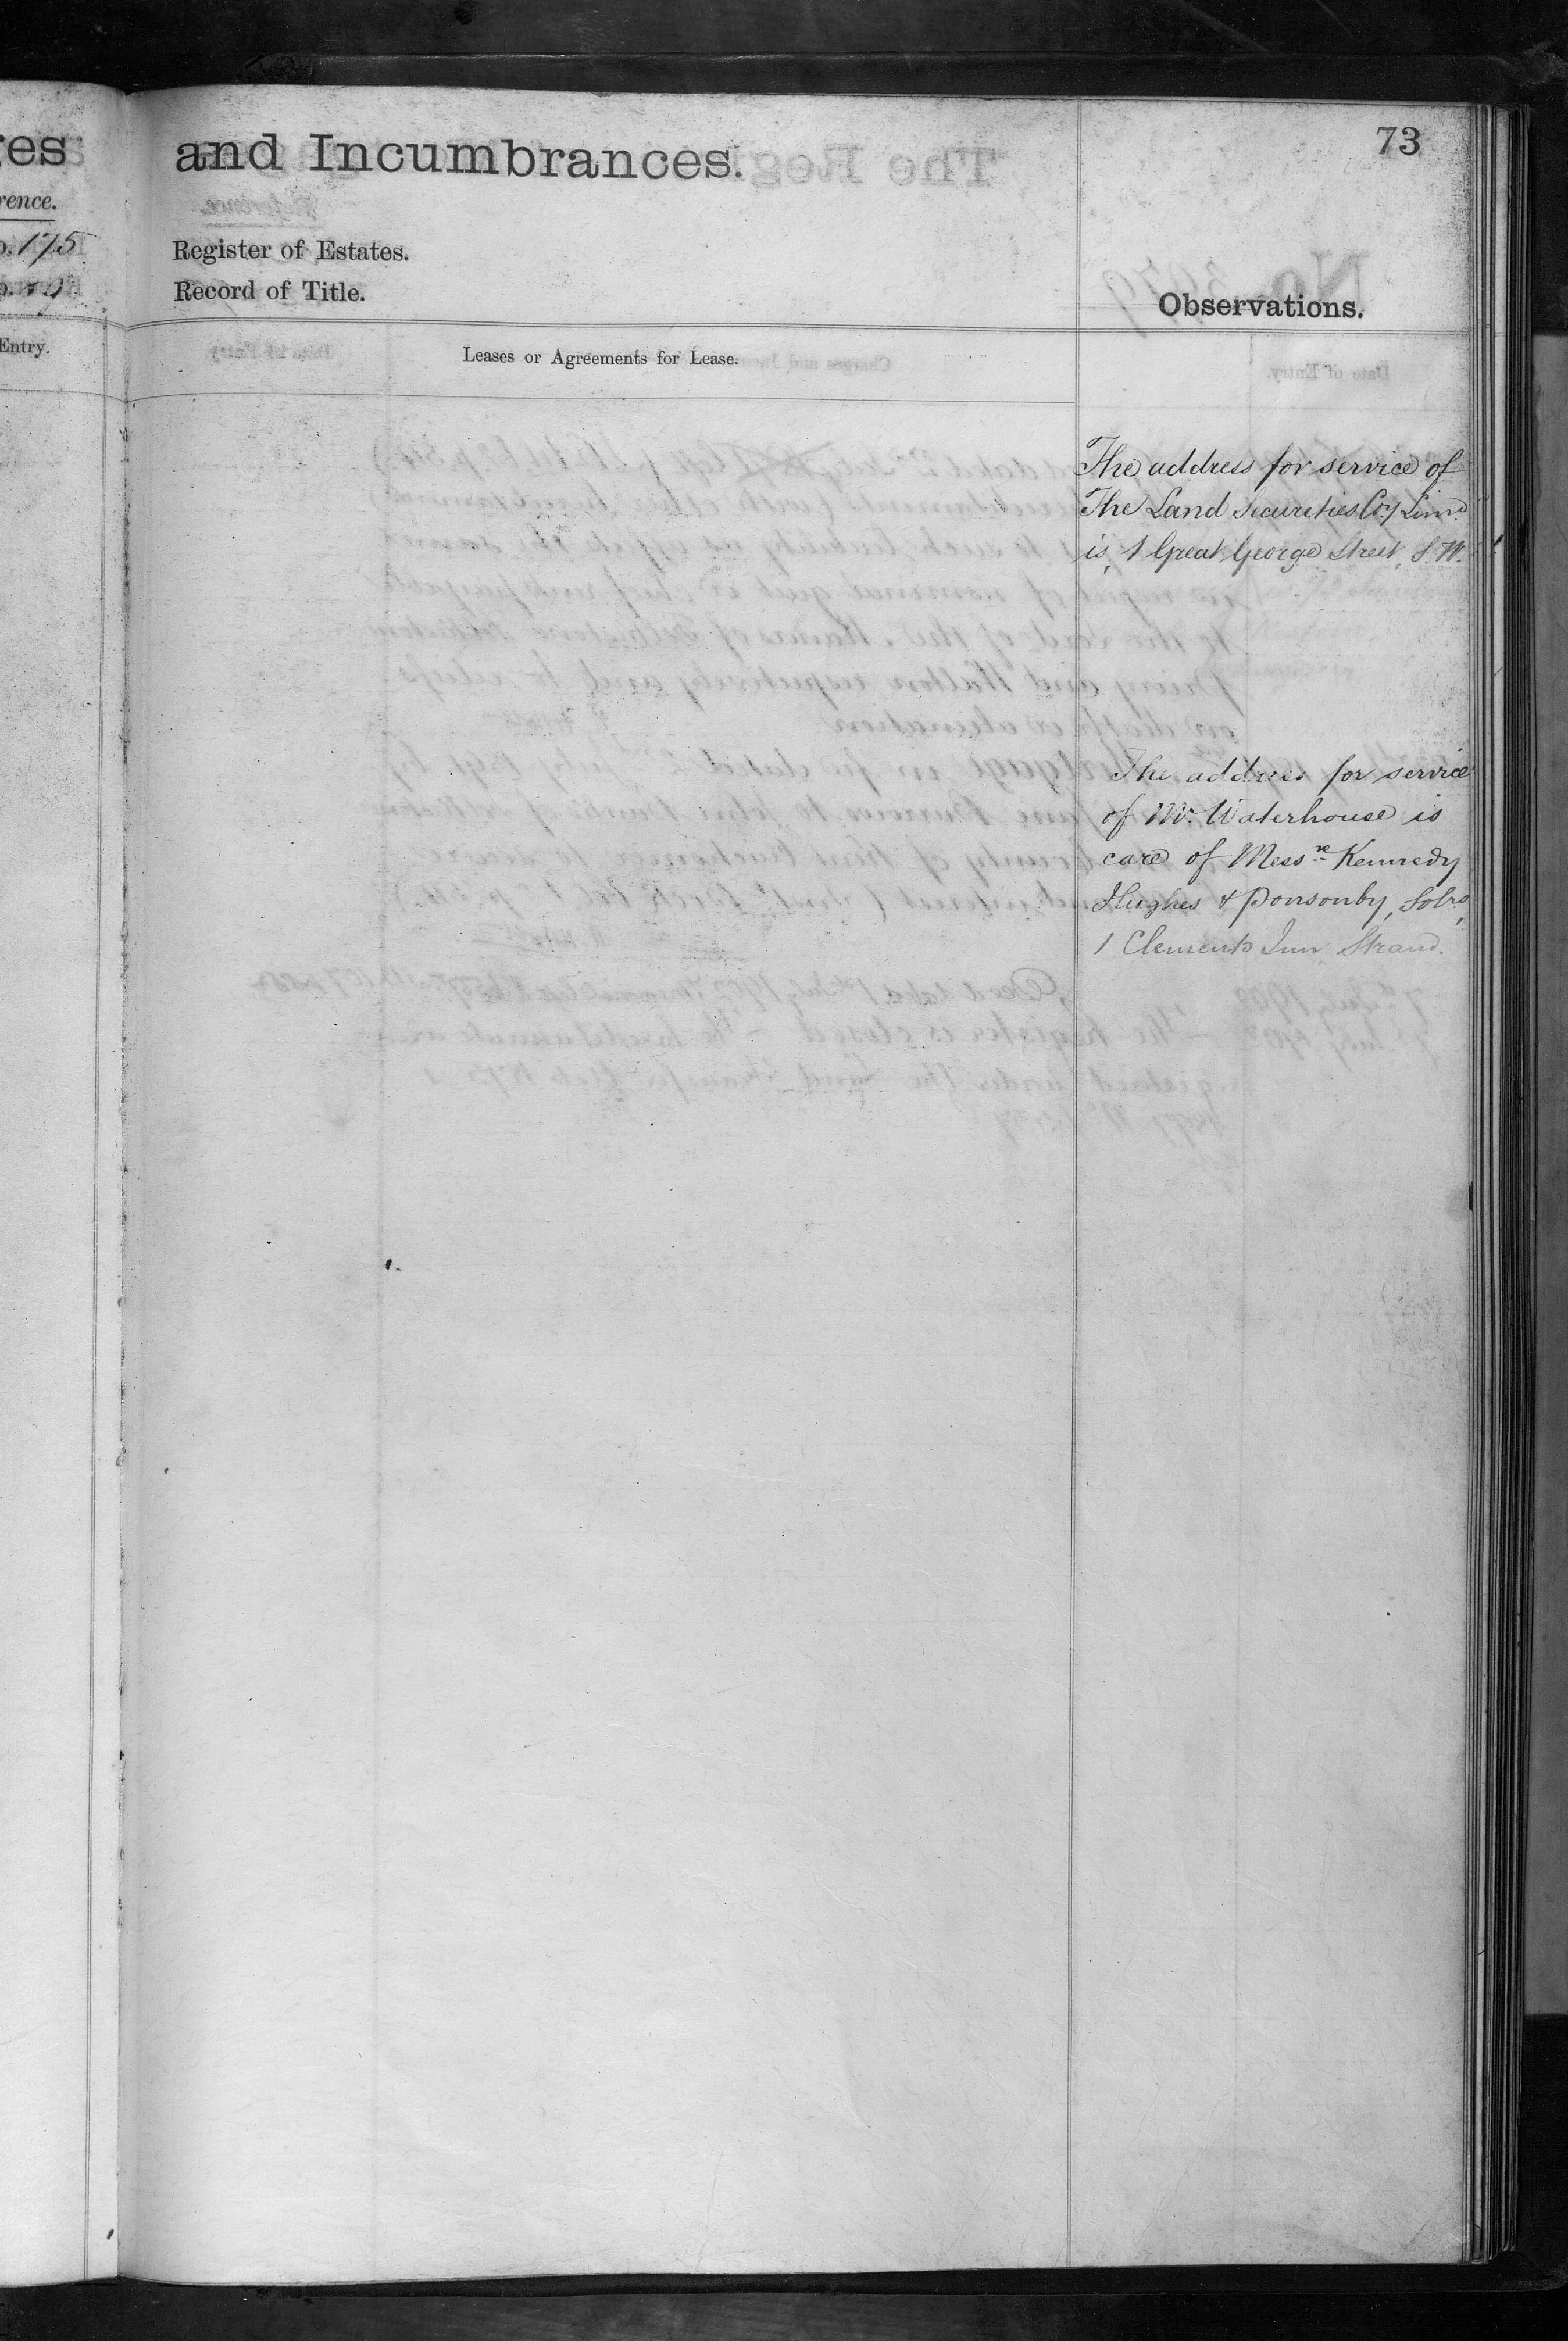 ges
rence.
o. 175
o.
Entry.
and Incumbrances.
73
Register of Estates.
Record of Title.
Observations.
Leases or Agreements for Lease.
The address for service of
The Land Securities Coy Limd
is, 1 Great George Street, S.W.
The address for service
of Mr. Waterhouse is
care of Messrs Kennedy
Hughes & Ponsonby, Solrs,
1 Clements Inn Strand.